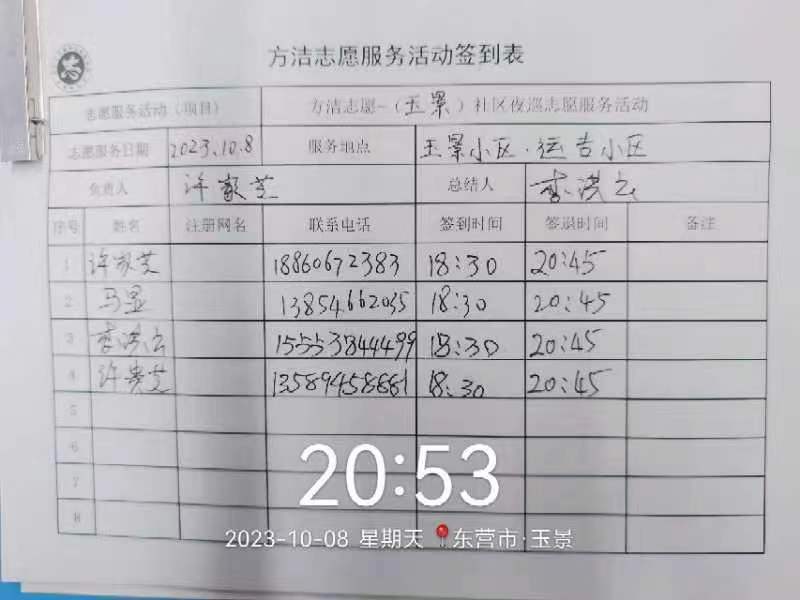 方洁志愿服务活动签到表
志愿服务活动（项目） 方洁志愿-（玉景）社区夜巡志愿服务活动
志愿服务日期 2023.10.8 服务地点 玉景小区·运吉小区
负责人 许家芝 总结人 李洪云
序号 姓名 注册网名 联系电话 签到时间 签退时间 备注
1 许家芝 18860672383 18:30 20:45
2 马显 18:30 20:45
3 李洪云 15553844499 18:30 20:45
4 许 芝 18:30 20:45
5
6
7
8
20:53
2023-10-08 星期天 东营市·玉景